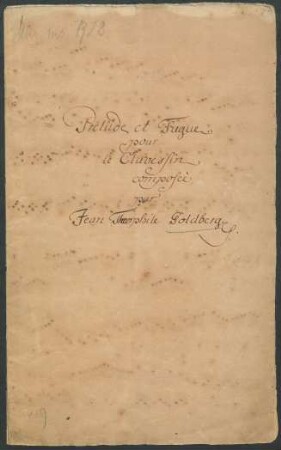 Prelude et Fugue
pour
le Clavessin
composée
par
Jean Theophile Goldberg